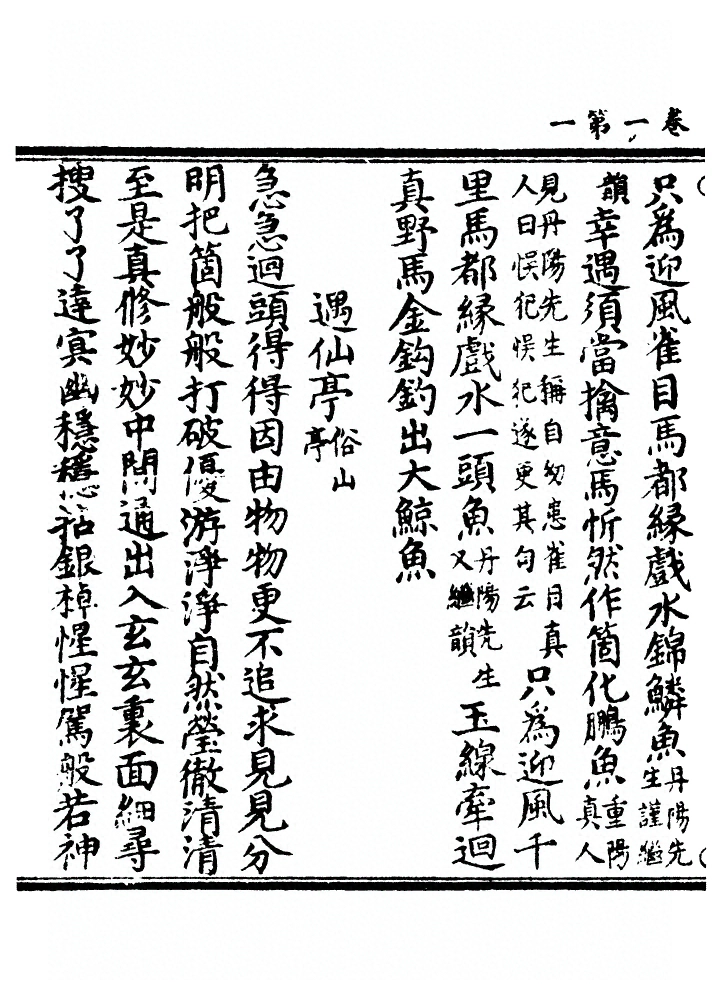 卷一第一
只爲迎風雀目馬都緣戲水錦鱗魚丹陽先生謹繼
韻幸遇須當擒意馬忻然作箇化鵬魚重陽真人
見丹陽先生稱自幼患雀目真人曰悞犯悞犯遂更其句云只爲迎風千
里馬都緣戲水一頭魚丹陽先生又繼韻玉線牽迴
真野馬金鈎釣出大鯨魚
遇仙亭俗山亭
急急迴頭得得因由物物更不追求見見分
明把箇般般打破優游淨淨自然瑩徹清清
至是真修妙妙中間通出入玄玄裏面細尋
搜了了達冥幽穩穩 銀棹惺惺駕般若神